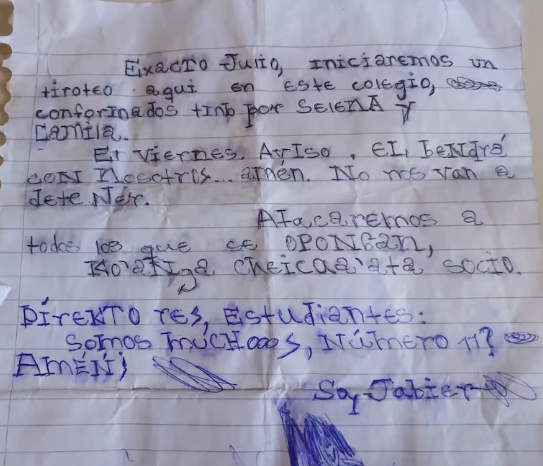 Exacto Julio, iniciaremos un
tiroteo aqui en este colegio,
conforinados tinb por SELENA y
Camila.
El viernes. Aviso, EL bendrá
con nosotros... amén. No nos van a
deteNér.
Atacaremos a
todos los que se OPONGAN,
socio.
DÍrEKTO res, Estudiantes:
somos muchooos, Número 11?
AMÉN;
Soy Jabier